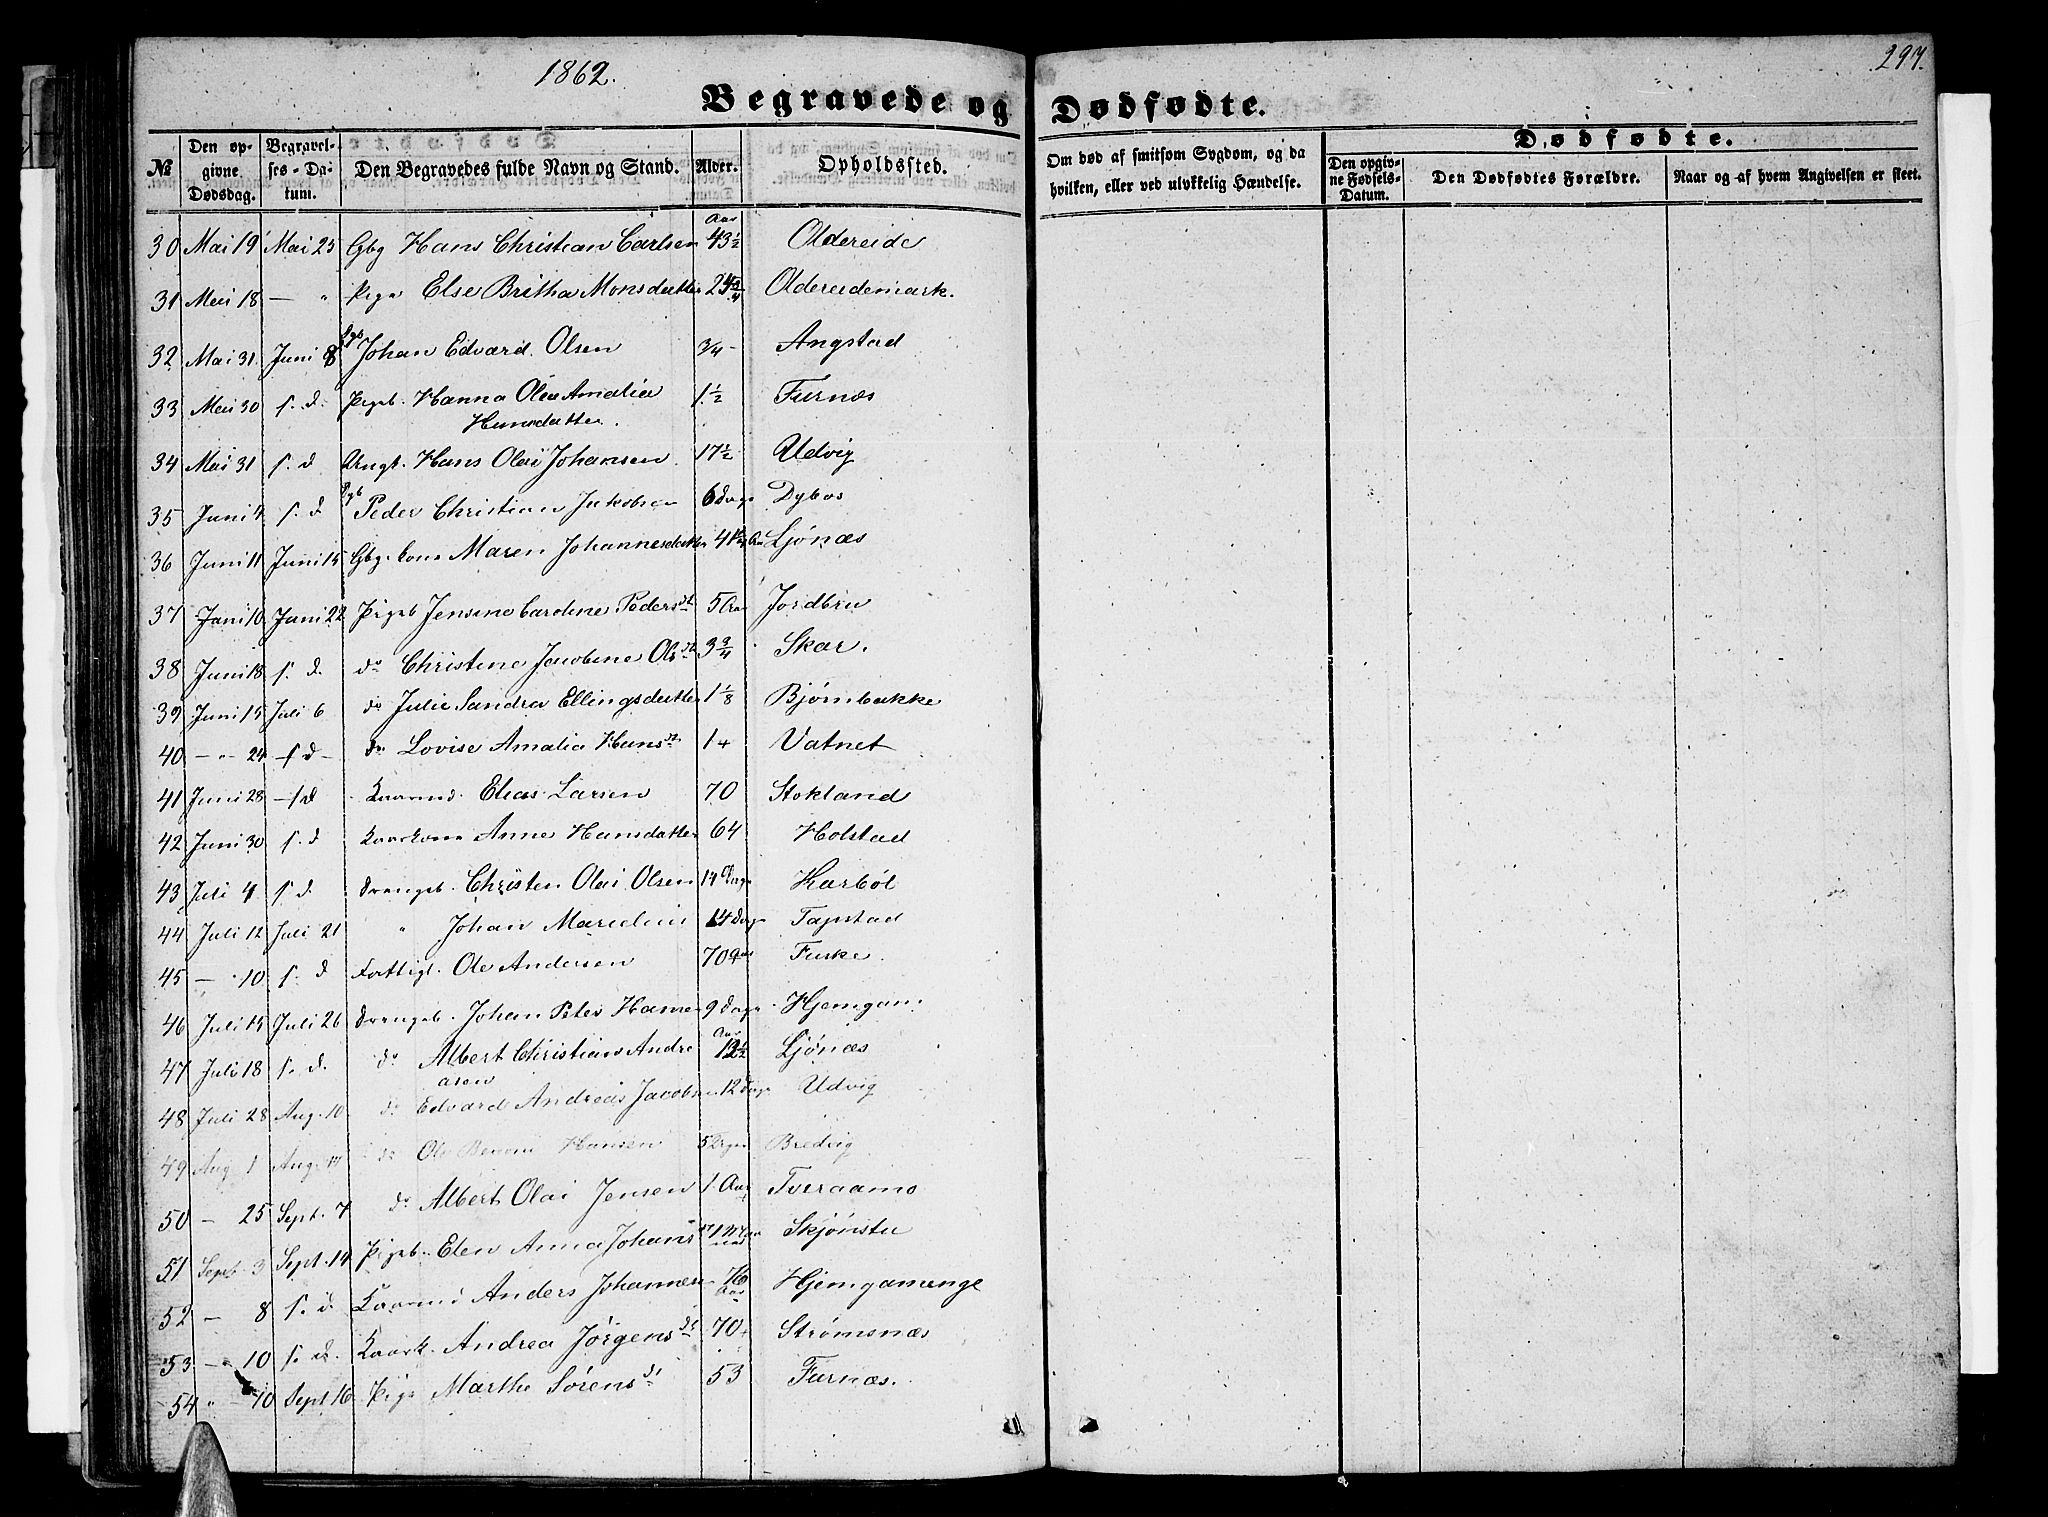 1862.
297.
Begravede og Dødfødte.
№ Den opgivne Dødsdag. Begravelses-Datum. Den Begravedes fulde Navn og Stand. Alder. Opholdssted. Om død af smitsom Sygdom, og da hvilken, eller ved ulykkelig Hændelse. Dødfødte. Den opgivne Fødsels-Datum. Den Dødfødtes Forældre. Naar og af hvem Angivelsen er skeet.
30 Mai 19 Mai 25 Gbg Hans Christian Carlsen Aar 43 1/2 Oldereide
31 Mai 18 — " Pige Else Britha Monsdatter Oldereidemark.
32 Mai 31 Juni 8 Johan Edvard Olsen 3/4 - Angstad
33 Mai 30 s. d. Pigeb. Hanna Olea Amalia 1 1/2 Furnæs
Hansdatter.
34 Mai 31 s. d Ungk. Hans Olai Johansen 17 1/2 Udvig
35 Juni 4 s. d Peder Christian Jakobsen 6 Dage Dybos
36 Juni 11 Juni 15 Gbg. kone Maren Johannesdatter Ljønæs
37 Juni 10 Juni 22 Pigeb Jensine Caroline Peders dt 5 Aar Jordbru
38 Juni 18 s. d. do Christine Jacobine Ols dt 3 3/4 Skar.
39 Juni 15 Juli 6 do Julie Sandra Ellingsdatter 1 1/8 Bjørnbakke
40 — " 24 s d — do Lovise Amalia Hans dt 1 + Vatnet
41 Juni 28 — s d Kaarmd. Elias Larsen 70 Stokland
42 Juni 30 s. d Kaarkone Anne Hansdatter 64 Holstad
43 Juli 4 s d. Drengeb. Christen Olai Olsen 14 Dage Karbøl
44 Juli 12 Juli 21 " Johan Marelius 14 Dage Tapstad
45 — " 10 s. d Fattigl. Ole Andersen 70 Aar Fuske.
46 Juli 15 Juli 26 Drengeb. Johan Peter Hansen 9 Dage Hjemgam.
47 Juli 18 s. d. do Albert Christian Andre Aar 12 1/2 Ljønæs
asen
48 Juli 28 Aug. 10 do Edvard Andreas Jacobsen 12 Dage Udvig
49 Aug. 1 Aug. 17 do Ole Hansen 5 Dage Bredvig
50 — 25 Sept. 7 do Albert Olai Jensen 1 Aar Tveraamo
51 Sept. 3 Sept. 14 Pigeb. Elen Anna Johans dt Skjønstu
52 — 8 s. d Kaarmd Anders Johannesen 76 Aar Hjemgamenge
53 — " 10 s. d. Kaark. Andrea Jørgens dt 70 + Strømsnæs
54 " — 10 Sept 16 Pige Marthe Sørens dt 53 Furnæs.